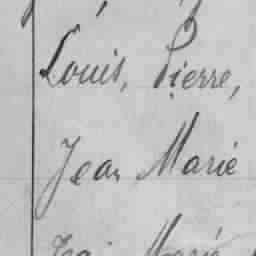 Louis, Pierre,
Jean Marie
Marie